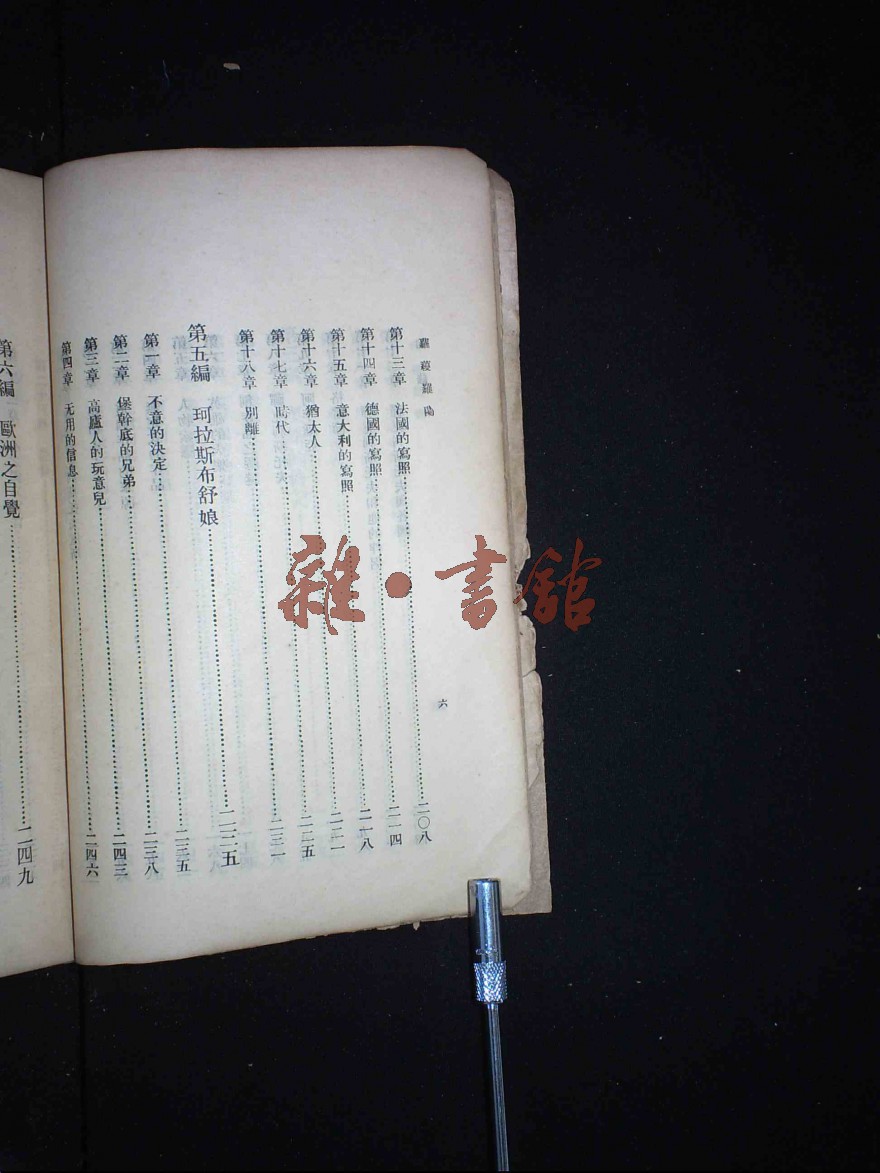 羅曼羅蘭
六
第十三章 法國的寫照……二〇八
第十四章 德國的寫照……二一四
第十五章 意大利的寫照……二一八
第十六章 猶太人……二二一
第十七章 時代……二二五
第十八章 別離……二三一
第五編 珂拉斯布舒娘……二三五
第一章 不意的決定……二三五
第二章 堡幹底的兄弟……二三八
第三章 高廬人的玩意兒……二四三
第四章 无用的信息……二四六
第六編 歐洲之自覺……二四九
雜·書館